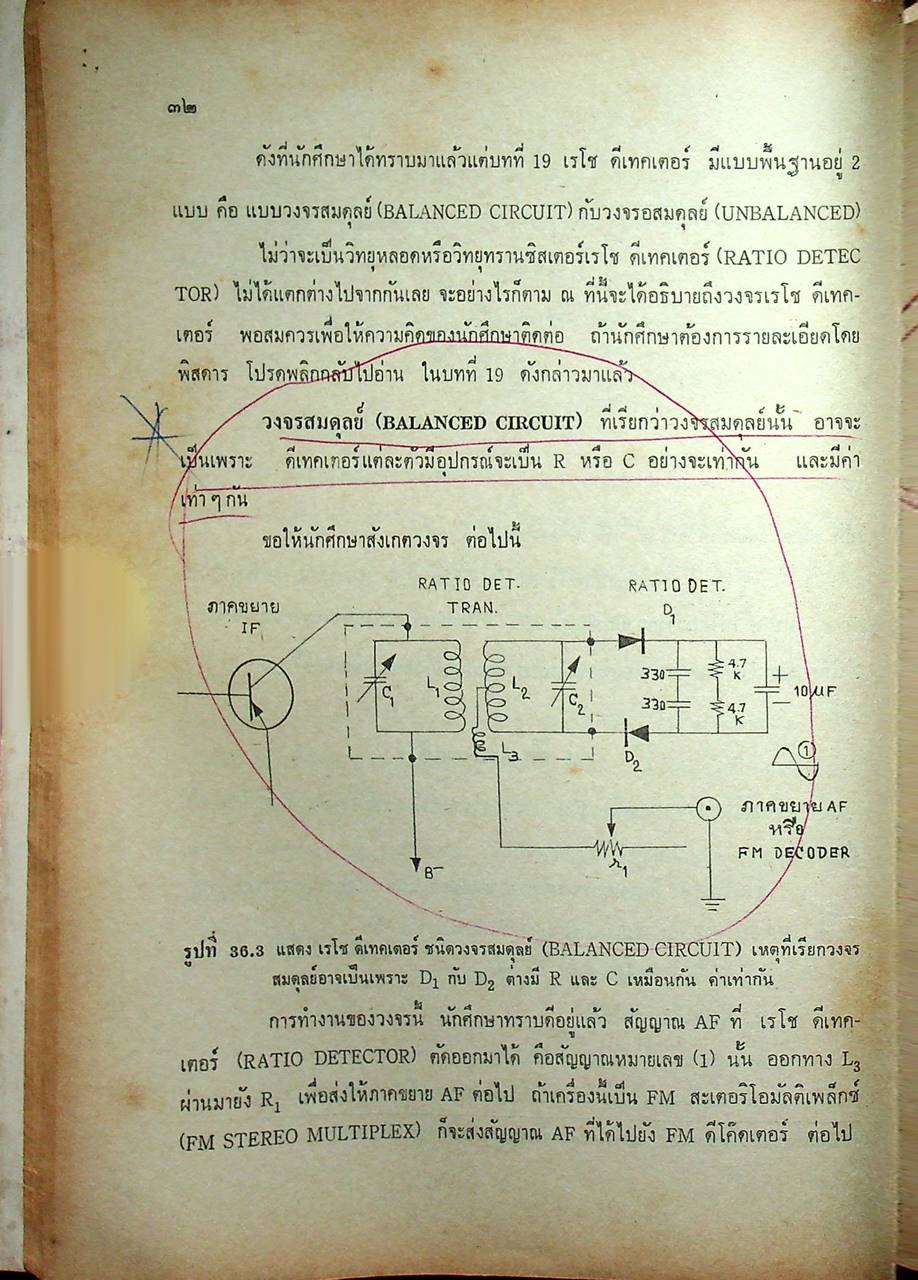 ๓๒
ดังที่นักศึกษาได้ทราบมาแล้วแต่บทที่ 19 เรโช ดีเทคเตอร์ มีแบบพื้นฐานอยู่ 2
แบบ คือ แบบวงจรสมดุลย์ (BALANCED CIRCUIT) กับวงจรอสมดุลย์ (UNBALANCED)
ไม่ว่าจะเป็นวิทยุหลอดหรือวิทยุทรานซิสเตอร์เรโช ดีเทคเตอร์ (RATIO DETEC
TOR) ไม่ได้แตกต่างไปจากกันเลย จะอย่างไรก็ตาม ณ ที่นี้จะได้อธิบายถึงวงจรเรโช ดีเทค-
เตอร์ พอสมควรเพื่อให้ความคิดของนักศึกษาติดต่อ ถ้านักศึกษาต้องการรายละเอียดโดย
พิสดาร โปรดพลิกกลับไปอ่าน ในบทที่ 19 ดังกล่าวมาแล้ว
วงจรสมดุลย์ (BALANCED CIRCUIT) ที่เรียกว่าวงจรสมดุลย์นั้น อาจจะ
เป็นเพราะ ดีเทคเตอร์แต่ละตัวมีอุปกรณ์จะเป็น R หรือ C อย่างจะเท่ากัน และมีค่า
เท่า ๆ กัน
ขอให้นักศึกษาสังเกตวงจร ต่อไปนี้
RATIO DET.
TRAN.
RATIO DET.
D1
ภาคขยาย
IF
C1
L1
L2
C2
L3
D2
330
330
4.7
K
4.7
K
+
10µF
−
1
ภาคขยาย AF
หรือ
FM DECODER
r1
B−
รูปที่ 36.3 แสดง เรโช ดีเทคเตอร์ ชนิดวงจรสมดุลย์ (BALANCED CIRCUIT) เหตุที่เรียกวงจร
สมดุลย์อาจเป็นเพราะ D1 กับ D2 ต่างมี R และ C เหมือนกัน ค่าเท่ากัน
การทำงานของวงจรนี้ นักศึกษาทราบดีอยู่แล้ว สัญญาณ AF ที่ เรโช ดีเทค-
เตอร์ (RATIO DETECTOR) ตัดออกมาได้ คือสัญญาณหมายเลข (1) นั้น ออกทาง L3
ผ่านมายัง R1 เพื่อส่งให้ภาคขยาย AF ต่อไป ถ้าเครื่องนี้เป็น FM สะเตอริโอมัลติเพล็กซ์
(FM STEREO MULTIPLEX) ก็จะส่งสัญญาณ AF ที่ได้ไปยัง FM ดีโค๊ดเตอร์ ต่อไป